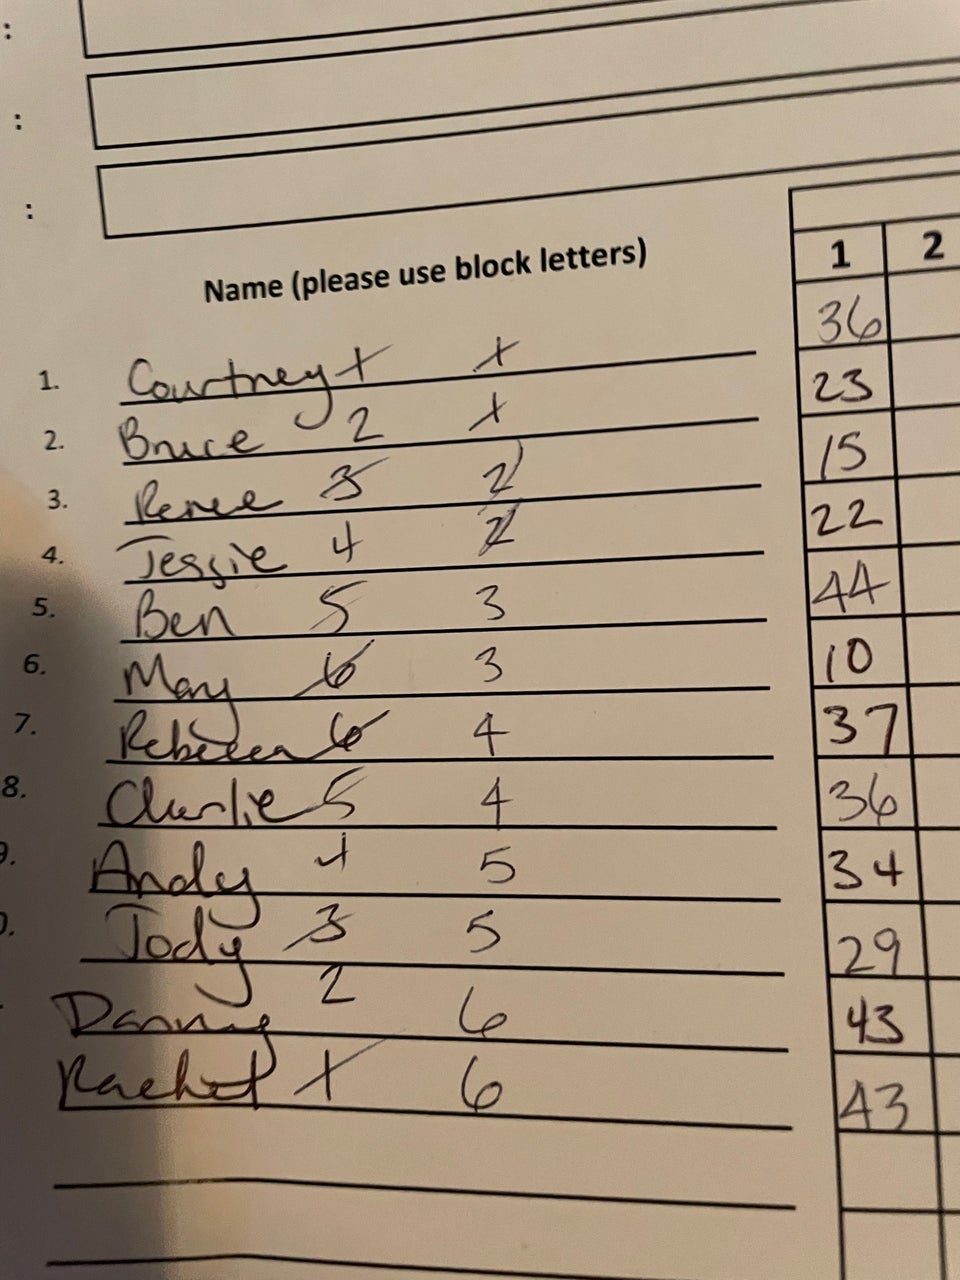 :
:
:
Name (please use block letters)
1 2
1. Courtney 36
2. Bruce 2 23
3. Renee 3 2 15
4. Jessie 4 2 22
5. Ben 5 3 44
6. 6 3 10
7. Rebecca 6 4 37
8. Charlie 5 4 36
9. Andy 4 5 34
0. Jody 3 5 29
Danny 2 6 43
Rachel 6 43